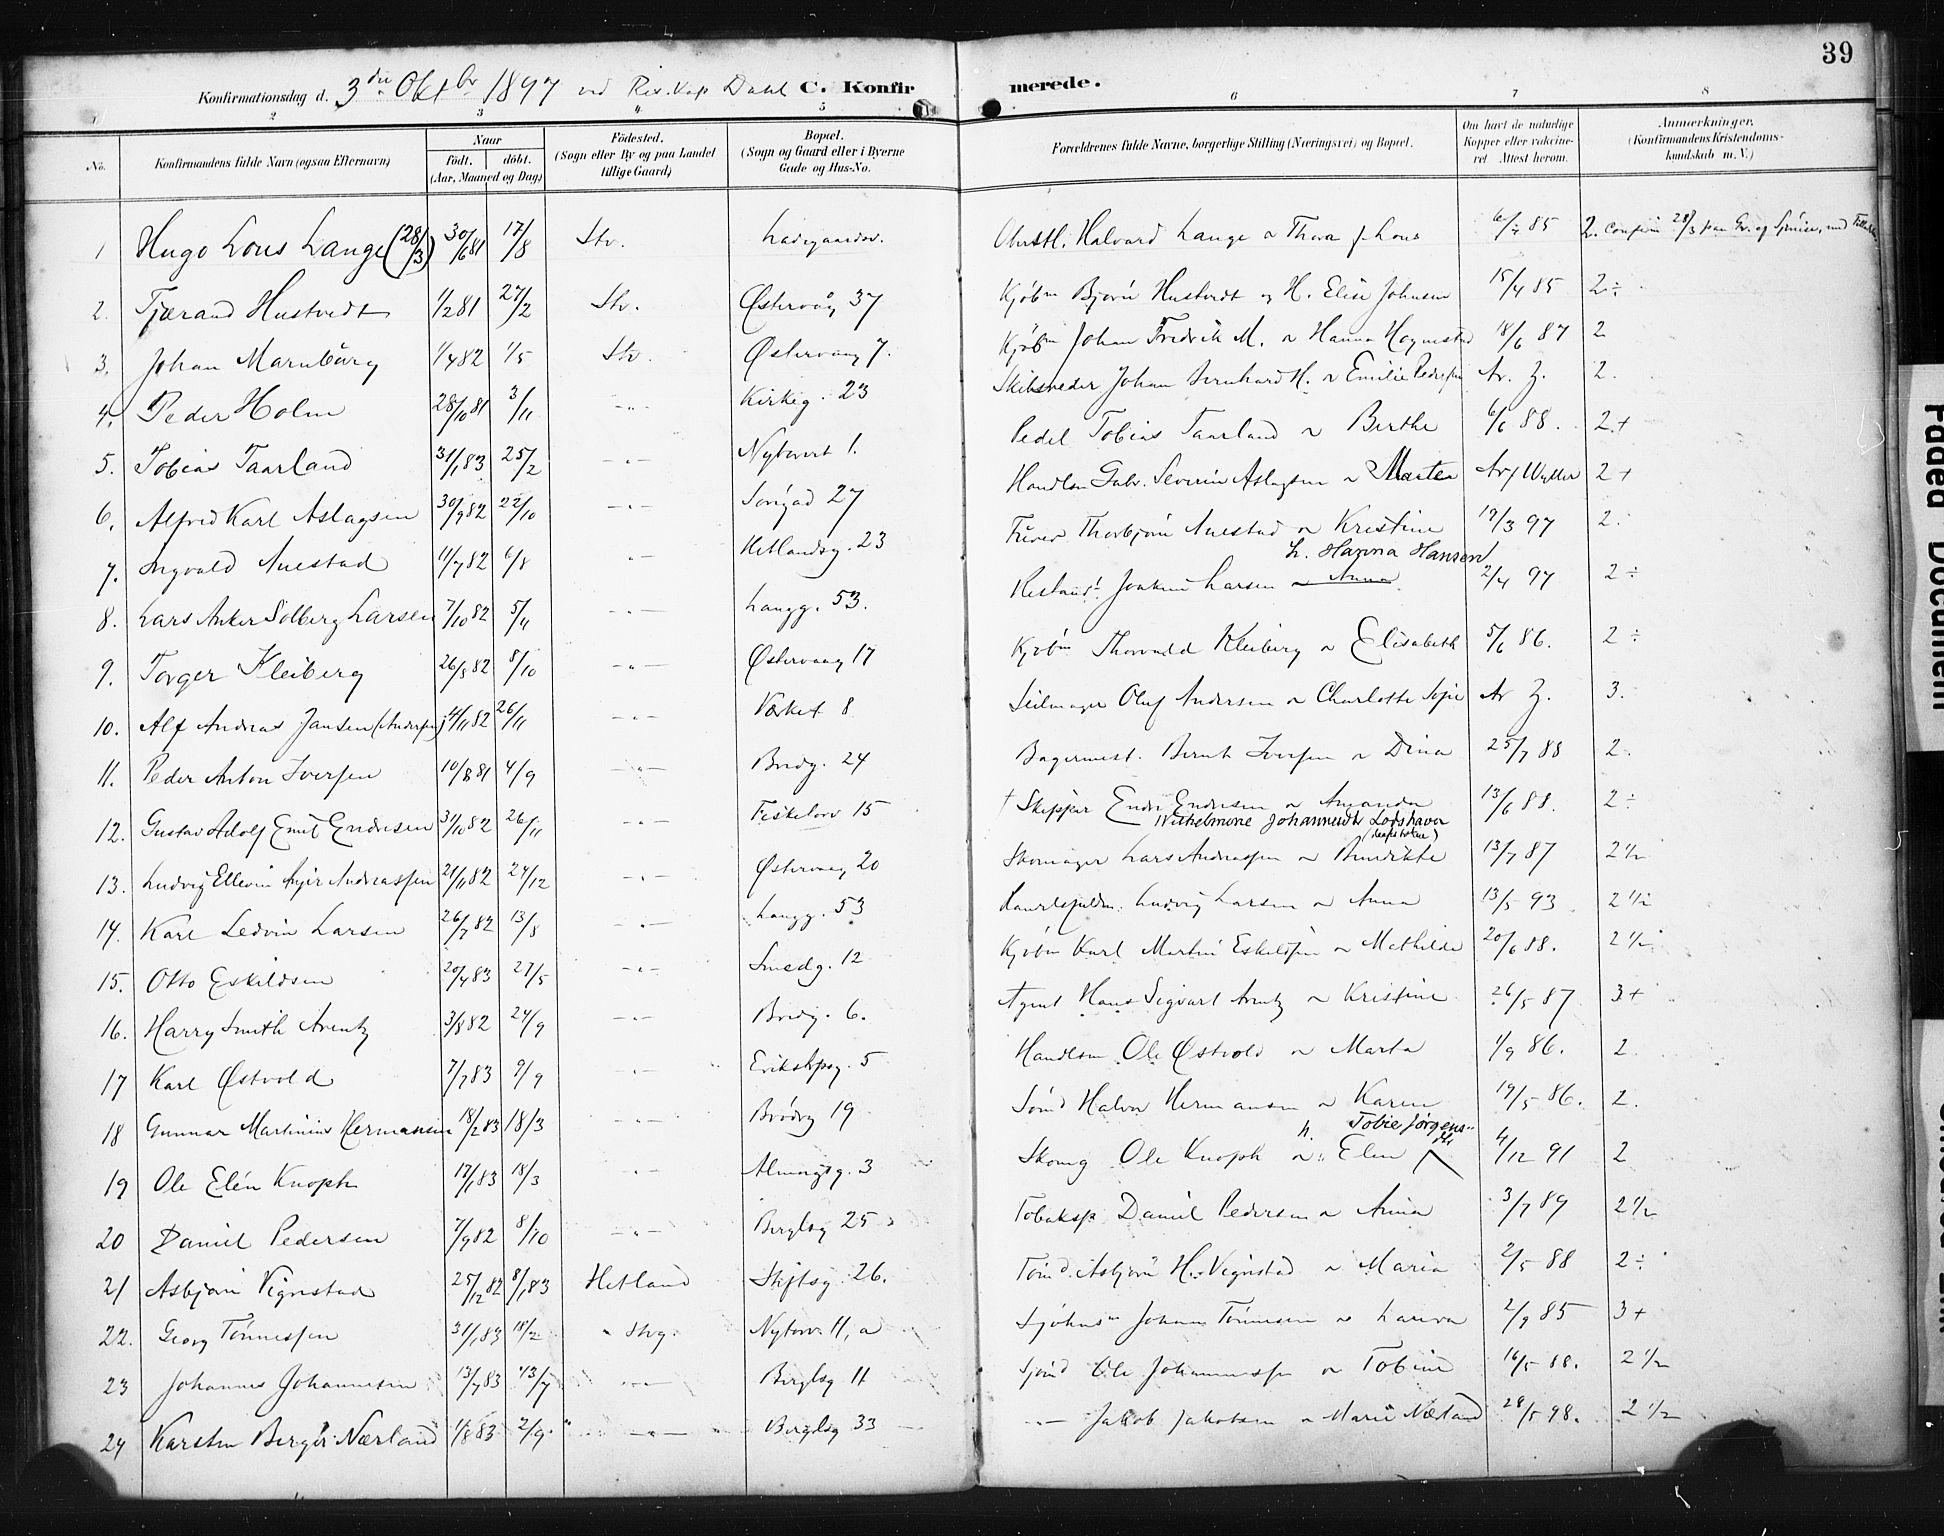 39
Konfirmationsdag d. 3die Oktbr 1897 ved Res. Kap Dahl C. Konfirmerede.
1 2 3 4 5 6 7 8
No. Konfirmandens fulde Navn (ogsaa Efternavn) Naar født. døbt. (Aar, Maaned og Dag) Fødested. (Sogn eller By og paa Landet tillige Gaard) Bopæl. (Sogn og Gaard eller i Byerne Gade og Hus-No. Forældrenes fulde Navne, borgerlige Stilling (Næringsvei) og Bopæl. Om havt de naturlige Kopper eller vakcineret Attest herom. Anmærkninger. (Konfirmandens Kristendomskundskab m. V.)
1 Hugo Lous Lange (28/3) 30/6 81 17/8 Stv. Ladegaardsv. Halvard Lange & Thora f. Lous 85 2. 28/3 paa Gr. af
2. Tjærand Hustvedt 1/2 81 27/2 Stv. Østervåg 37 Kjøbm Bjørn Hustvedt og H. Elise Johnsen 15/4 85 2÷
3. Johan Marnburg 1/4 82 1/5 Stv. Østervaag 7. Kjøbm Johan Fredrik M. & Hanna 18/6 87 2
4. Peder Holm 28/10 81 3/11 -"- Kirkeg. 23 Skibsreder Johan Bernhard H. & Emilie Pedersen Ar. Z. 2.
5. Tobias Taarland 31/1 83 25/2 -"- Nytorvet 1. Pedel Tobias Taarland & Berthe 6/6 88. 2+
6. Alfred Karl Aslagsen 30/9 82 22/10 -"- 27 Handlsm Gabr. Severin Aslagsen & Marta 2+
7. Ingvald Auestad 11/7 82 6/8 -"- Hetlandsg. 23 Thorbjørn Auestad & Kristine 19/3 97 2.
8. Lars Anker Solberg Larsen 7/10 82 5/11 -"- Langg. 53. Restaur. Joakim Larsen & Anna L. Hanna Hansen 2/4 97 2÷
9. Torger Kleiberg 26/8 82 8/10 -"- Østervaag 17 Kjøbm Thorvald Kleiberg & Elisabeth 5/6 86. 2÷
10. Alf Andreas Jansen (Andersen) 4/11 82 26/11 -"- Verket 8 Seilmager Oluf Andersen & Charlotte Sofie Ar Z. 3.
11. Peder Anton Iversen 10/8 81 4/9 -"- Bredg. 24 Bagermest. Bernt Iversen & Dina 25/7 88 2.
12. Gustav Adolf Emil Endresen 31/10 82 26/11 -"- Fisketorv 15 † Skipper Endre Endresen & Amanda Wilhelmine Johannesdtr 13/6 88. 2÷
13. Ludvig Andreassen 21/11 82 24/12 -"- Østervaag 20 Skomager Lars Andreassen & Benedikte 13/7 87 2 1/2
14. Karl Ledvin Larsen 26/7 82 13/8 -"- Langg. 53 Ludvig Larsen & Anna 13/5 93 2 1/2
15. Otto Eskildsen 20/4 83 27/5 -"- Smedg. 12 Kjøbm Karl Martin Eskildsen & Mathilde 20/6 88. 2 1/2
16. Harry Smith Arentz 3/8 82 24/9 -"- Bredg. 6. Agent Hans Sigvart Arentz & Kristine 26/5 87 3+
17 Karl Østvold 7/7 83 9/9 -"- Erikstrpsg. 5 Handlsm Ole Østvold & Marta 1/9 86. 2
18 Gunnar Martinius Hermansen 18/2 83 18/3 -"- Brødrg 19 Halvor Hermansen & Karen 19/5 86. 2.
19 Ole Elén Knoph 17/1 83 18/3 " Almingsg. 3 Skomg Ole Knoph & Elen h. Tobie Jørgensdtr 4/12 91 2
20 Daniel Pedersen 7/9 82 8/10 -"- Berglsg 25 Tobaksp. Daniel Pedersen & Anna 3/7 89 2 1/2
21 Asbjørn Vignestad 25/12 82 8/1 83 Hetland Stiftsg. 26. Asbjørn H. Vignestad & Maria 2/5 88 2÷
22. Georg Tønnessen 31/1 83 18/2 " Stvg. Nytorv. 11, a Johan Tønnesen & Laura 2/9 85 3+
23 Johannes Johannessen 13/7 83 13/7 -"- Berglsg 11 Ole Johannessen & Tobine 16/5 88. 2 1/2
24 Karsten Berger Nærland 1/8 83 2/9 " -"- Berglsg 33 -"- Jakob Jakobsen & Marie Nærland 28/5 98. 2 1/2
Faded Document